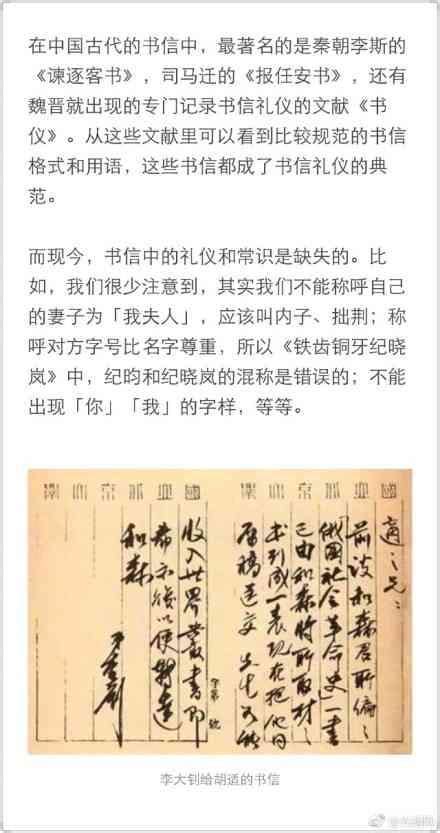 在中国古代的书信中，最著名的是秦朝李斯的
《谏逐客书》，司马迁的《报任安书》，还有
魏晋就出现的专门记录书信礼仪的文献《书
仪》。从这些文献里可以看到比较规范的书信
格式和用语，这些书信都成了书信礼仪的典
范。
而现今，书信中的礼仪和常识是缺失的。比
如，我们很少注意到，其实我们不能称呼自己
的妻子为「我夫人」，应该叫内子、拙荆；称
呼对方字号比名字尊重，所以《铁齿铜牙纪晓
岚》中，纪昀和纪晓岚的混称是错误的；不能
出现「你」「我」的字样，等等。
適之兄：
前談和森君所編
俄國社會革命史」一書
已由和森將所取材之
書列成一表現在把他同
原稿送交 先生 如能
字第 號
收入世界叢書即
希示後以便轉達
和森
李大釗给胡适的书信